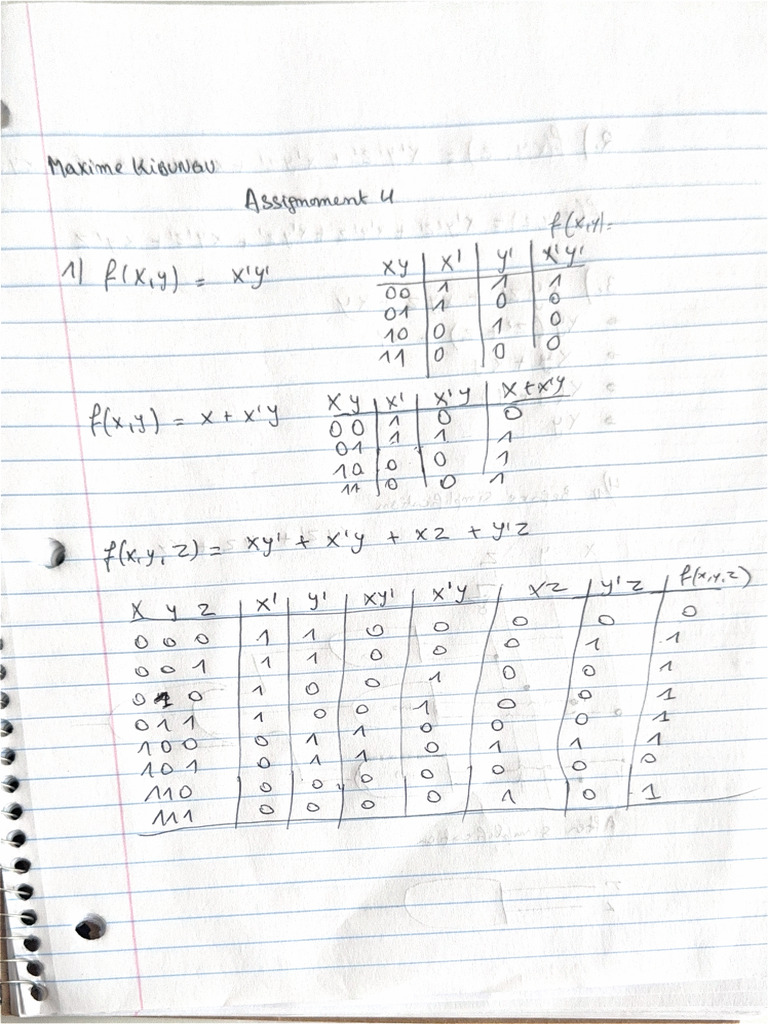 Maxime KIBUNGU
Assignmoment 4
f(x,y)=
1) f(x,y) = x'y'
xy | x' | y' | x'y'
00 | 1 | 1 | 1
01 | 1 | 0 | 0
10 | 0 | 1 | 0
11 | 0 | 0 | 0
f(x,y) = x + x'y
x y | x' | x'y | x + x'y
00 | 1 | 0 | 0
01 | 1 | 1 | 1
10 | 0 | 0 | 1
11 | 0 | 0 | 1
f(x,y,z) = xy' + x'y + xz + y'z
x y z | x' | y' | xy' | x'y | xz | y'z | f(x,y,z)
0 0 0 | 1 | 1 | 0 | 0 | 0 | 0 | 0
0 0 1 | 1 | 1 | 0 | 0 | 0 | 1 | 1
0 1 0 | 1 | 0 | 0 | 1 | 0 | 0 | 1
0 1 1 | 1 | 0 | 0 | 1 | 0 | 0 | 1
1 0 0 | 0 | 1 | 1 | 0 | 0 | 0 | 1
1 0 1 | 0 | 1 | 1 | 0 | 1 | 1 | 1
1 1 0 | 0 | 0 | 0 | 0 | 0 | 0 | 0
1 1 1 | 0 | 0 | 0 | 0 | 1 | 0 | 1